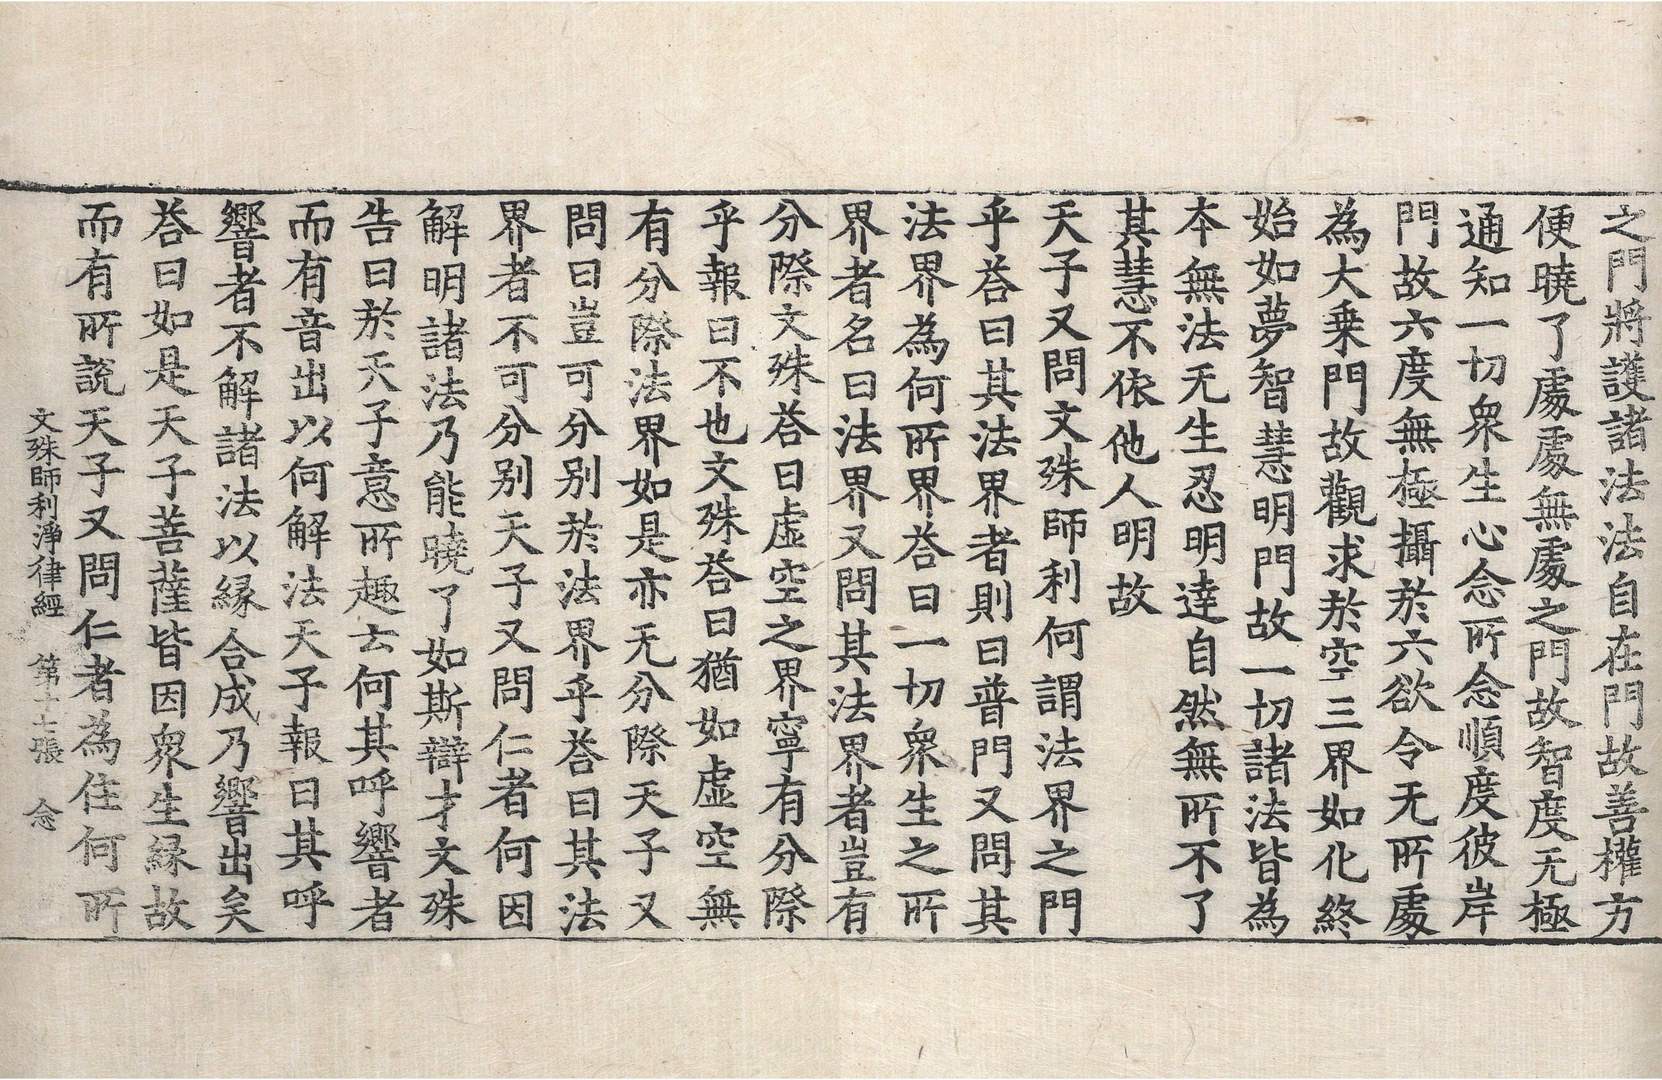 之門將護諸法法自在門故善權方
便曉了處處無處之門故智度无極
通知一切衆生心念所念順度彼岸
門故六度無極攝於六欲令无所處
為大乗門故觀求於空三界如化終
始如夢智慧明門故一切諸法皆為
本無法无生忍明達自然無所不了
其慧不依他人明故
天子又問文殊師利何謂法界之門
乎荅曰其法界者則曰普門又問其
法界為何所界荅曰一切衆生之所
界者名曰法界又問其法界者豈有
分際文殊荅曰虛空之界寧有分際
乎報曰不也文殊荅曰猶如虛空無
有分際法界如是亦无分際天子又
問曰豈可分别於法界乎荅曰其法
界者不可分别天子又問仁者何因
解明諸法乃能曉了如斯辯才文殊
告曰於天子意所趣云何其呼響者
而有音出以何解法天子報曰其呼
響者不解諸法以緣合成乃響出矣
荅曰如是天子菩薩皆因衆生緣故
而有所說天子又問仁者為住何所
文殊師利淨律經 第十七張 念